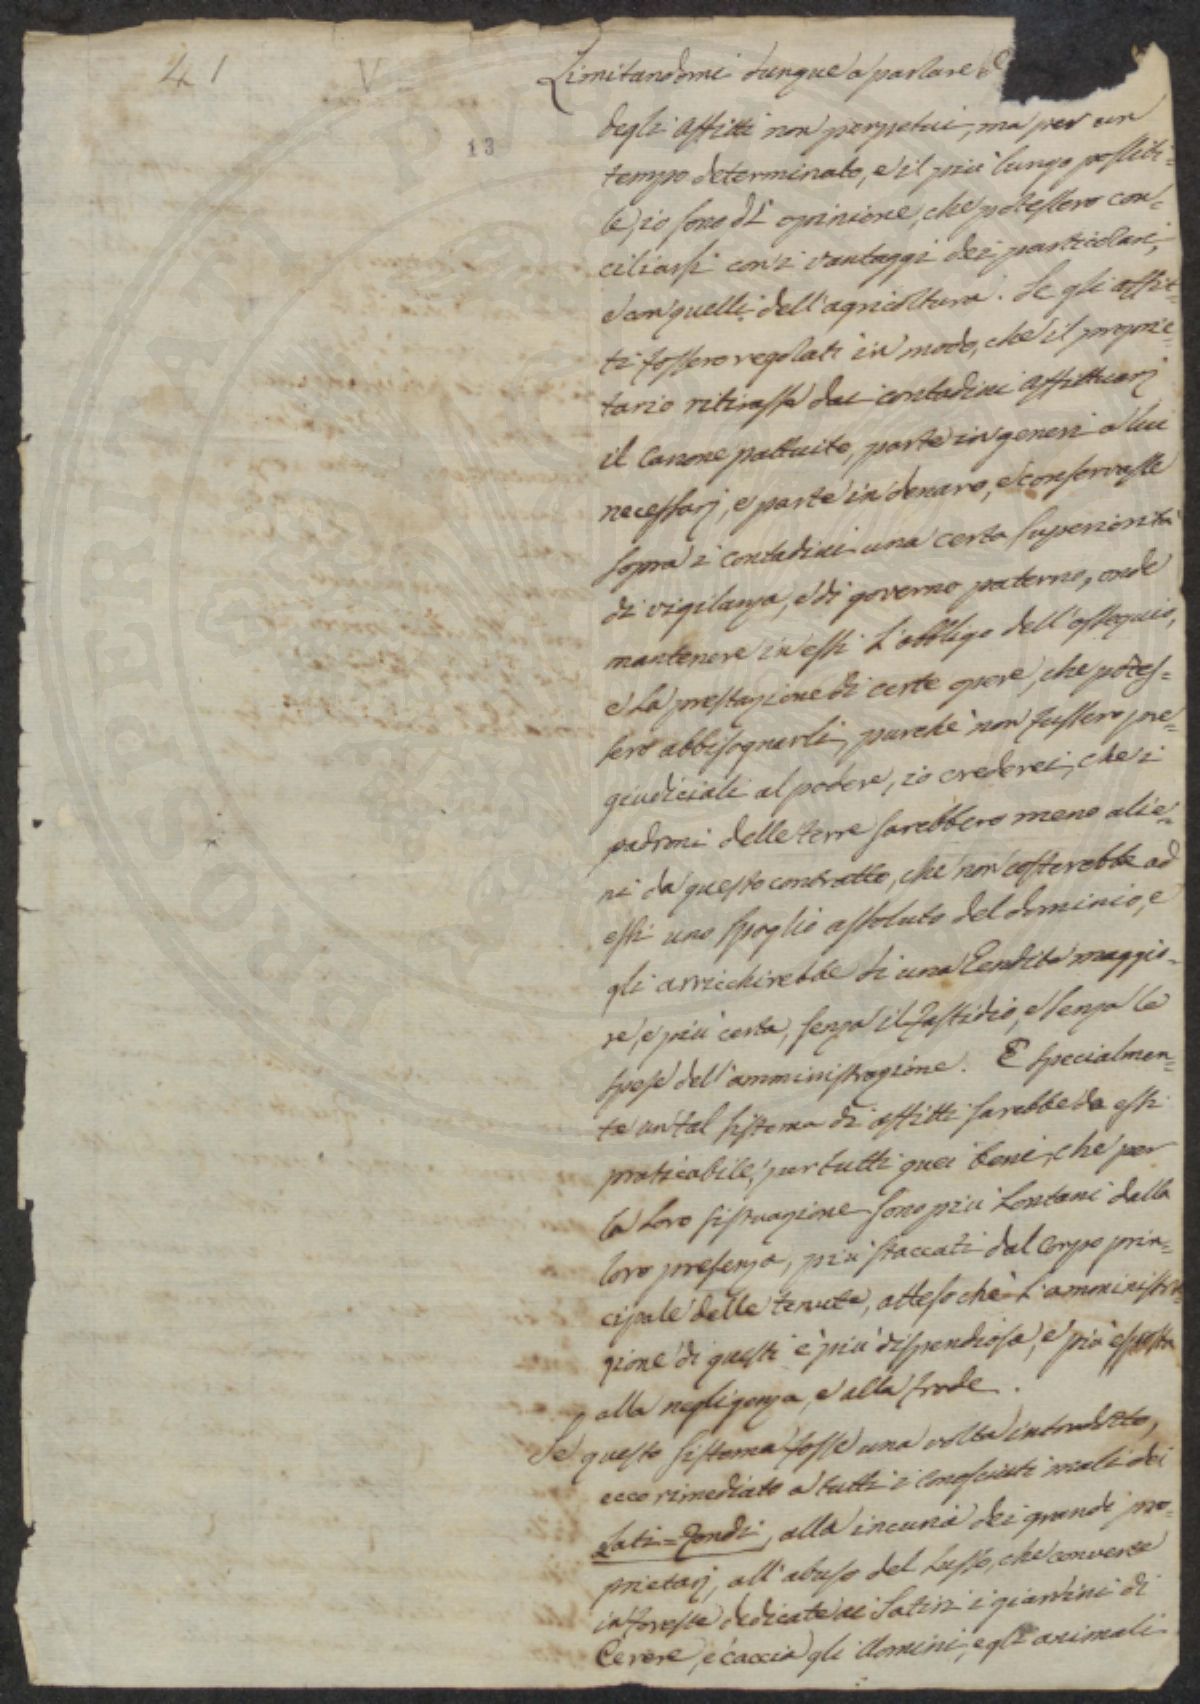 41 V
Limitandomi dunque a parlare
13
degli affitti non perpetui, ma per un
tempo determinato, e il più lungo possibi=
le, io sono di opinione, che potessero con=
ciliarsi con i vantaggi dei particolari,
e con quelli dell'agricoltura. Se gli affit=
ti fossero regolati in modo, che il proprie=
tario ritirasse dai contadini affittuarj
il canone pattuito, parte in generi a lui
necessarj, e parte in denaro, e conservasse
sopra i contadini una certa superiorità
di vigilanza, e di governo paterno, onde
mantenere in essi l'obbligo dell'ossequio,
e la prestazione di certe opere, che potes=
sero abbisognarli, purchè non fussero pre=
giudiciali al podere, io crederei, che i
padroni delle terre sarebbero meno alie=
ni da questo contratto, che non costerebbe ad
essi uno spoglio assoluto del dominio, e
gli arricchirebbe di una rendita maggio=
re, e più certa, senza il fastidio, e senza le
spese dell'amministrazione. E specialmen=
te un tal sistema di affitti sarebbe da essi
praticabile, per tutti quei beni, che per
la loro situazione sono più lontani dalla
loro presenza, più staccati dal corpo prin=
cipale delle tenute, atteso che l'amministra=
zione di questi è più dispendiosa, e più esposta
alla negligenza, e alla frode.
Se questo sistema fosse una volta introdotto,
ecco rimediato a tutti i conosciuti mali dei
Lati=fondi, alla incuria dei grandi pro=
prietarj, all'abuso del lusso, che converte
in foreste dedicate ai Satiri i giardini di
Cerere, e caccia gli Uomini, e gli animali